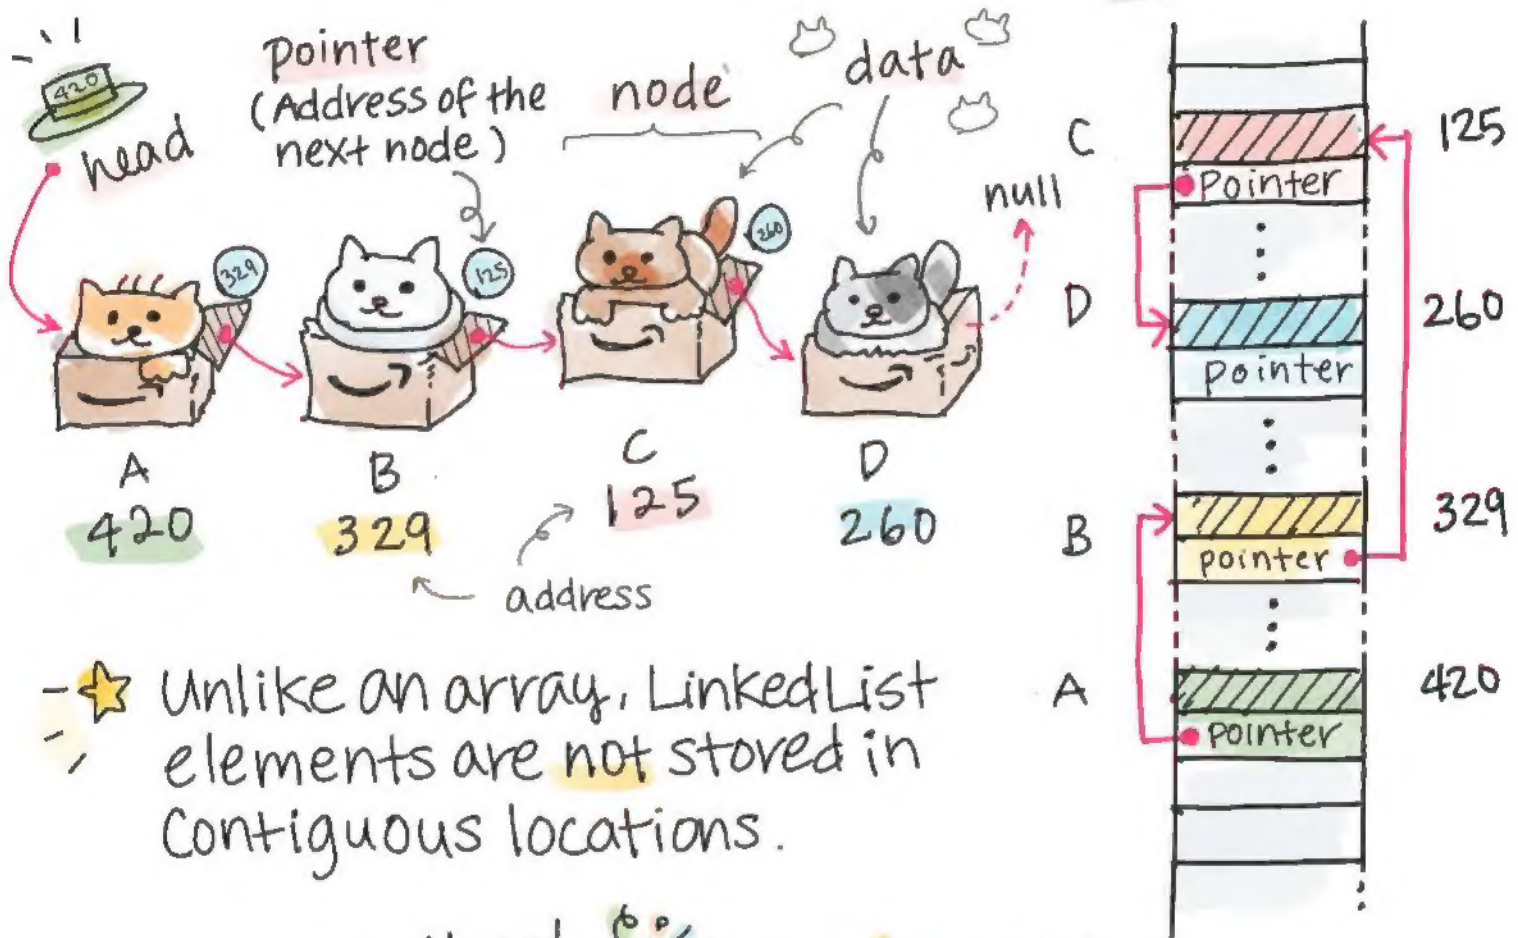 420
head
pointer
(Address of the
next node)
node
data
null
329
125
260
A
420
B
329
C
125
D
260
address
Unlike an array, LinkedList
elements are not stored in
contiguous locations.
C
125
pointer
D
260
pointer
B
329
pointer
A
420
pointer